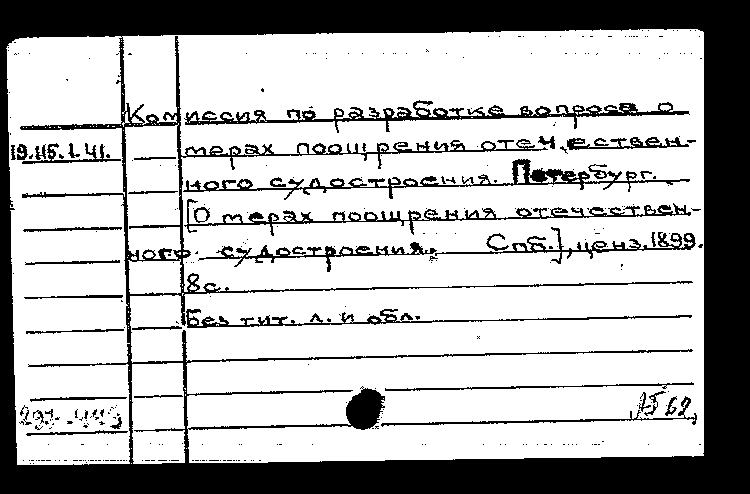 Комиссия по разработке вопроса о
19.115.1.41. мерах поощрения отечествен-
ного судостроения. Петербург.
[О мерах поощрения отечествен-
ного судостроения. Спб.], ценз. 1899.
8с.
Без тит. л. и обл.
62